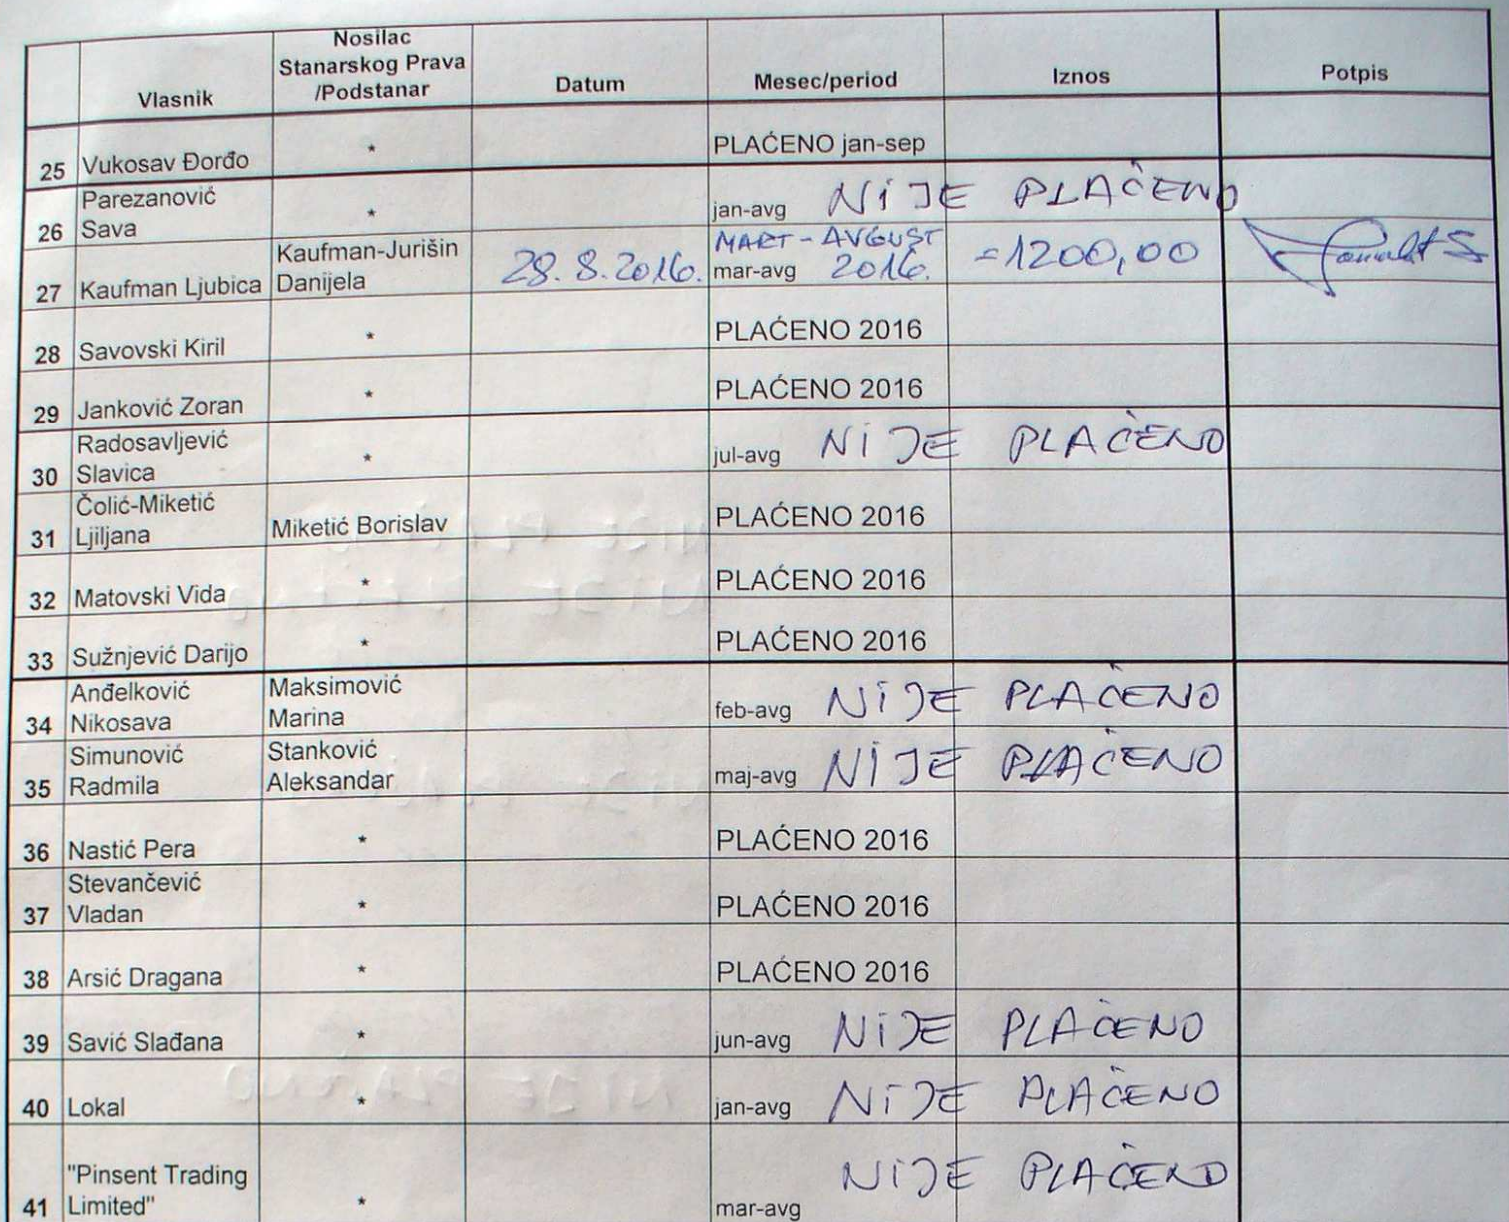 Vlasnik
Nosilac
Stanarskog Prava
/Podstanar
Datum
Mesec/period
Iznos
Potpis
25 Vukosav Đorđo * PLAĆENO jan-sep
Parezanović
26 Sava * jan-avg NIJE PLAĆENO
27 Kaufman Ljubica
Kaufman-Jurišin
Danijela
28.8.2016.
MART-AVGUST
mar-avg 2016.
=1200,00
28 Savovski Kiril * PLAĆENO 2016
29 Janković Zoran * PLAĆENO 2016
Radosavljević
30 Slavica * jul-avg NIJE PLAĆENO
Čolić-Miketić
31 Ljiljana Miketić Borislav PLAĆENO 2016
32 Matovski Vida * PLAĆENO 2016
33 Sužnjević Darijo * PLAĆENO 2016
Anđelković
34 Nikosava
Maksimović
Marina
feb-avg NIJE PLAĆENO
Simunović
35 Radmila
Stanković
Aleksandar
maj-avg NIJE PLAĆENO
36 Nastić Pera * PLAĆENO 2016
Stevančević
37 Vladan * PLAĆENO 2016
38 Arsić Dragana * PLAĆENO 2016
39 Savić Slađana * jun-avg NIJE PLAĆENO
40 Lokal * jan-avg NIJE PLAĆENO
"Pinsent Trading
41 Limited" * mar-avg NIJE PLAĆENO